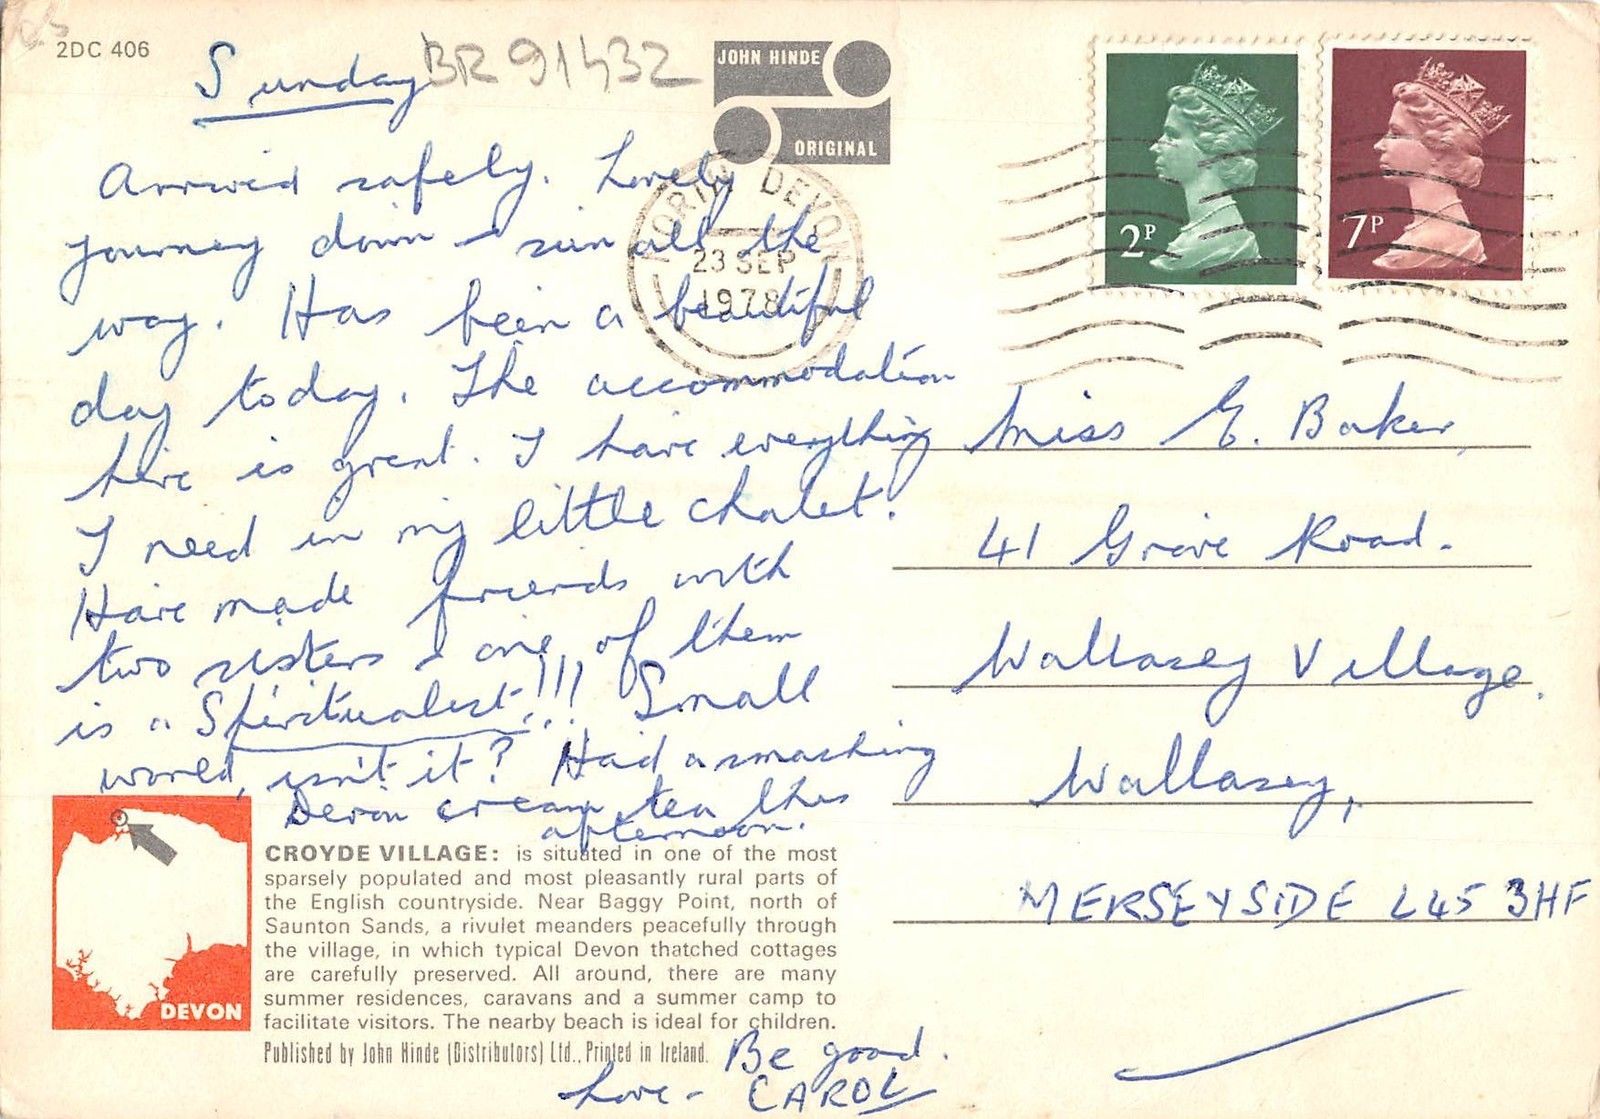 2DC 406
Sunday
BR 91432
JOHN HINDE
ORIGINAL
NORTH DEVON
23 SEP
1978
2P
7P
Arrived safely. Lovely
journey down & sun all the
way. Has been a beautiful
day today. The accommodation
here is great. I have everything
I need in my little chalet.
Have made friends with
two sisters & one of them
is a Spiritualist!!! Small
world, isn't it? Had a smashing
Devon cream tea this
afternoon.
Miss E. Baker,
41 Grove Road.
Wallasey Village.
Wallasey,
MERSEYSIDE L45 3HF
DEVON
CROYDE VILLAGE: is situated in one of the most
sparsely populated and most pleasantly rural parts of
the English countryside. Near Baggy Point, north of
Saunton Sands, a rivulet meanders peacefully through
the village, in which typical Devon thatched cottages
are carefully preserved. All around, there are many
summer residences, caravans and a summer camp to
facilitate visitors. The nearby beach is ideal for children.
Published by John Hinde (Distributors) Ltd., Printed in Ireland.
Be good.
Love - CAROL